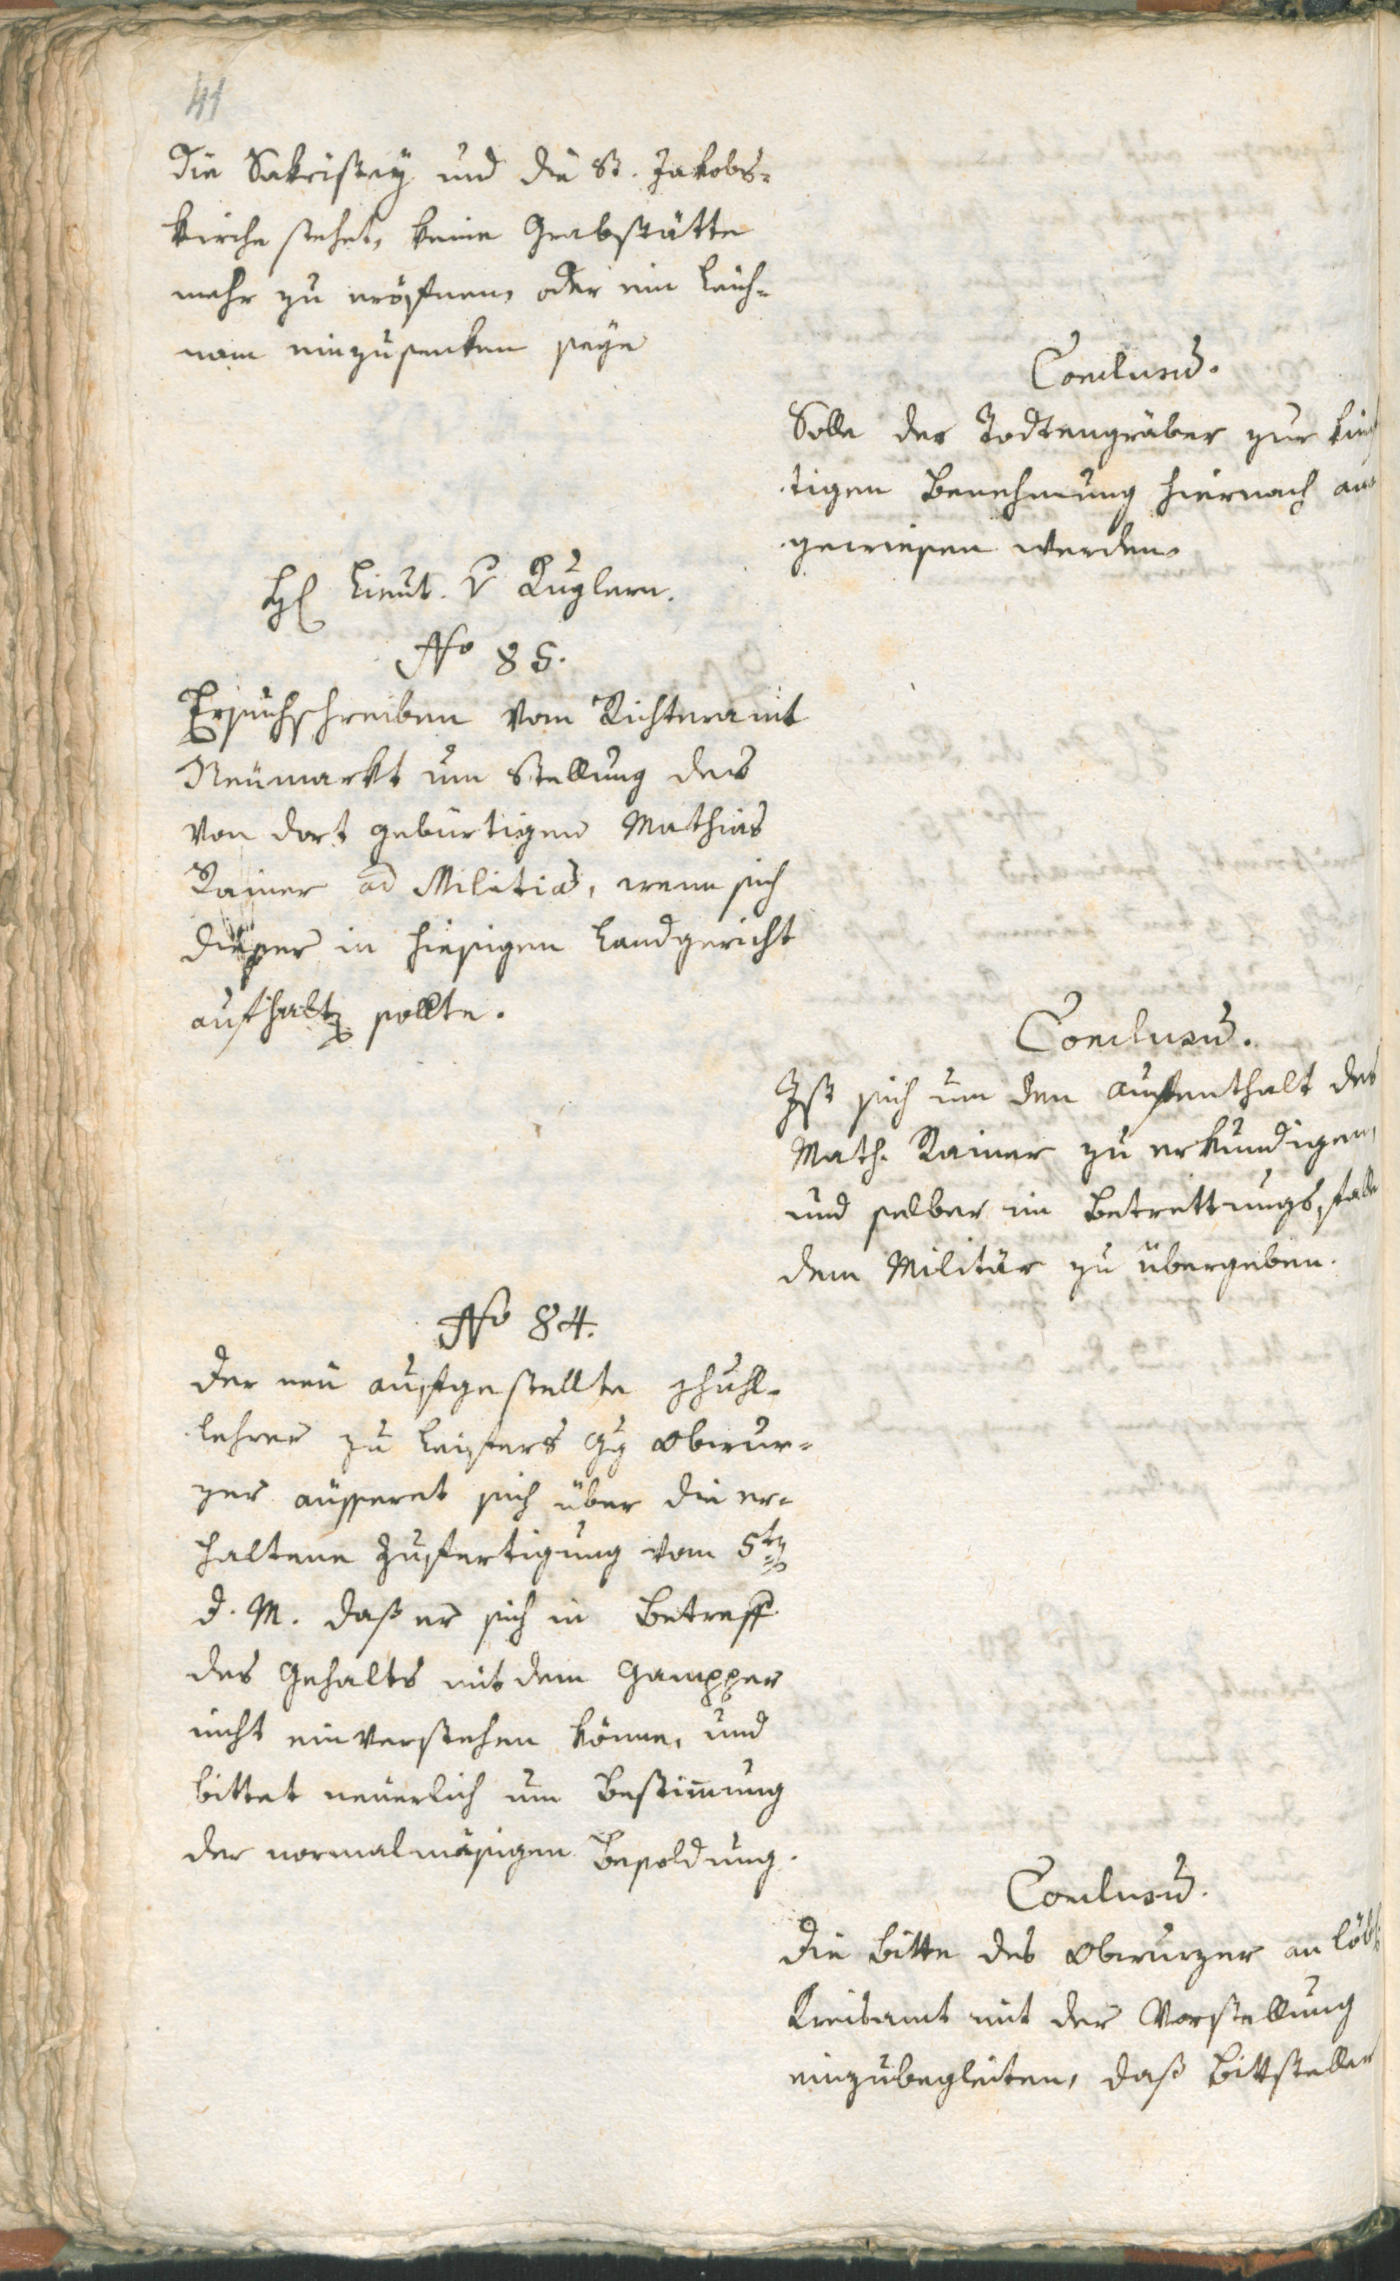 41
die Sakristeÿ und die St. Jakobs-
kirche stehet, keine Grabstätte
mehr zu eröfnen, oder ein Leich-
nam einzusenken seÿe
Conclusũ.
Solle der Todtengräber zur künf
tigen Benehmung hiernach an
gewiesen werden.
H Lieut. v Kuglern.
No 85.
Ersuchschreiben vom Richteramt
Neumarkt um Stellung des
von dort gebürtigen Mathias
Rainer ad Militiã, wenn sich
dieser in hiesigen Landgericht
aufhalt sollte.
Conclusũ.
Ist sich um den Aufenthalt des
Math. Rainer zu erkundigen,
und selber im Betrettungs, falle
dem Militär zu übergeben.
No 84.
Der neu aufgestellte Schuhl-
lehrer zu Leifers Gg Obwur-
zer äusseret sich über die er-
haltene Zufertigung vom 5t
d. M. daß er sich in Betreff
des Gehalts mit dem Gampper
nicht einverstehen könne, und
bittet neuerlich um Bestim̃ung
der normalmäsigen Besoldung.
Conclusũ.
Die Bitte des Obwurzer an löbl
Kreisamt mit der Vorstellung
einzubegleiten, daß Bittsteller